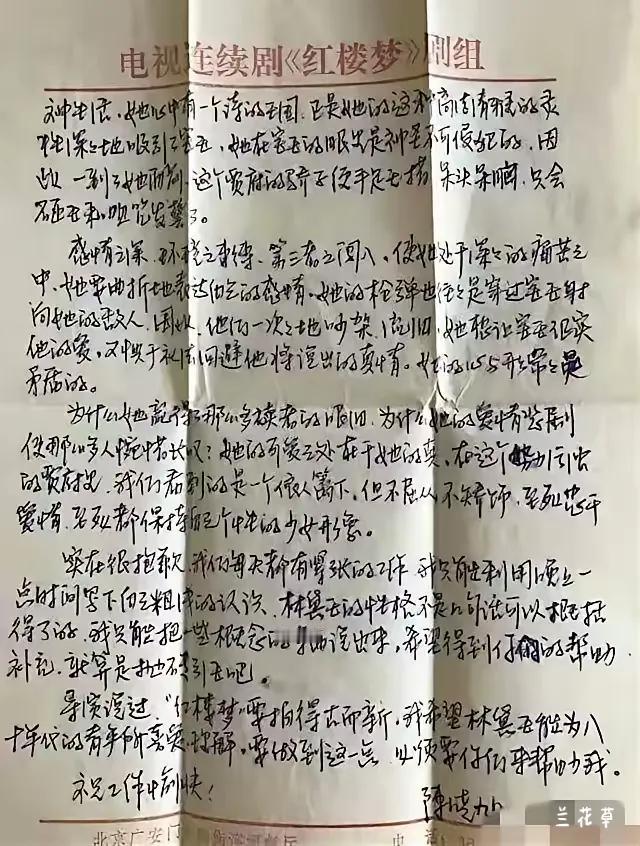 电视连续剧《红楼梦》剧组
神生活，她心中有一个诗的王国，正是她的这种高洁清雅的灵
性深深地吸引了宝玉，她在宝玉的眼里是神圣不可侵犯的，因
此一到了她面前，这个贾府的骄子便手足无措，呆头呆脑，只会
感情之深，环境之束缚，第三者之闯入，使她处于深深的痛苦之
中，她要曲折地表达自己的感情。她的枪弹也往往是穿过宝玉射
向她的敌人，因此，他们一次次地吵架，流泪，她想让宝玉证实
他的爱，又惧于礼法回避他将说出的真情。她的心与开口常常是
矛盾的。
为什么她赢得了那么多读者的眼泪，为什么她的爱情悲剧
使那么多人惋惜长叹？她的可爱之处在于她的真，在这个
的贾府里，我们看到的是一个依人篱下，但不屈从不矫饰，至死忠于
爱情，至死都保持自己个性的少女形象。
实在很抱歉，我们每天都有紧张的工作，我只能利用晚上一
点时间写下自己粗浅的认识，林黛玉的性格不是几句话可以概括
得了的，我只能把一些概念的 说出来，希望得到你们的帮助
补充，就算是抛砖引玉吧。
导演说过，“红楼梦”要拍得古而新，我希望林黛玉能为八
十年代的青年所喜爱、理解，要做到这一点，必须要你们来帮助我。
祝工作愉快！
陈晓旭
北京广安门
电 话
兰花草